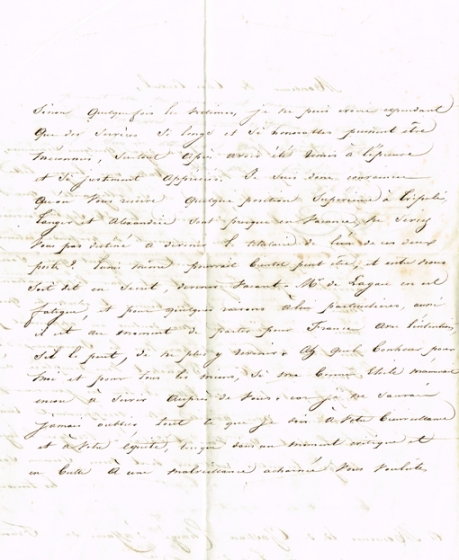 Sinon quelquefois les victimes, je ne puis croire cependant
que des services si longs et si honorables puissent être
méconnus, surtout après avoir été mis à l'épreuve
et si justement appréciés. Je suis donc convaincu
qu'on vous réserve quelque position supérieure à Tripoli,
Tanger et Alexandrie sont presque en vacance, ne seriez
vous pas destiné à devenir le titulaire de l'un de ces deux
postes? Tunis même pourrait bientôt peut être, et entre nous
soit dit en secret, devenir vacant. Mr. de Lagau en est
fatigué, et pour quelques raisons à lui particulières, aussi
il est au moment de partir pour France avec l'intention,
s'il le peut, de ne plus y revenir. Ah quel bonheur pour
moi et pour tous les miens, si une bonne étoile m'amenait
encore à servir auprès de vous, car je ne saurais
jamais oublier tout ce que je dois à votre bienveillance
et à votre équité, lorsque dans un moment critique et
en butte à une malveillance acharnée vous voulûtes